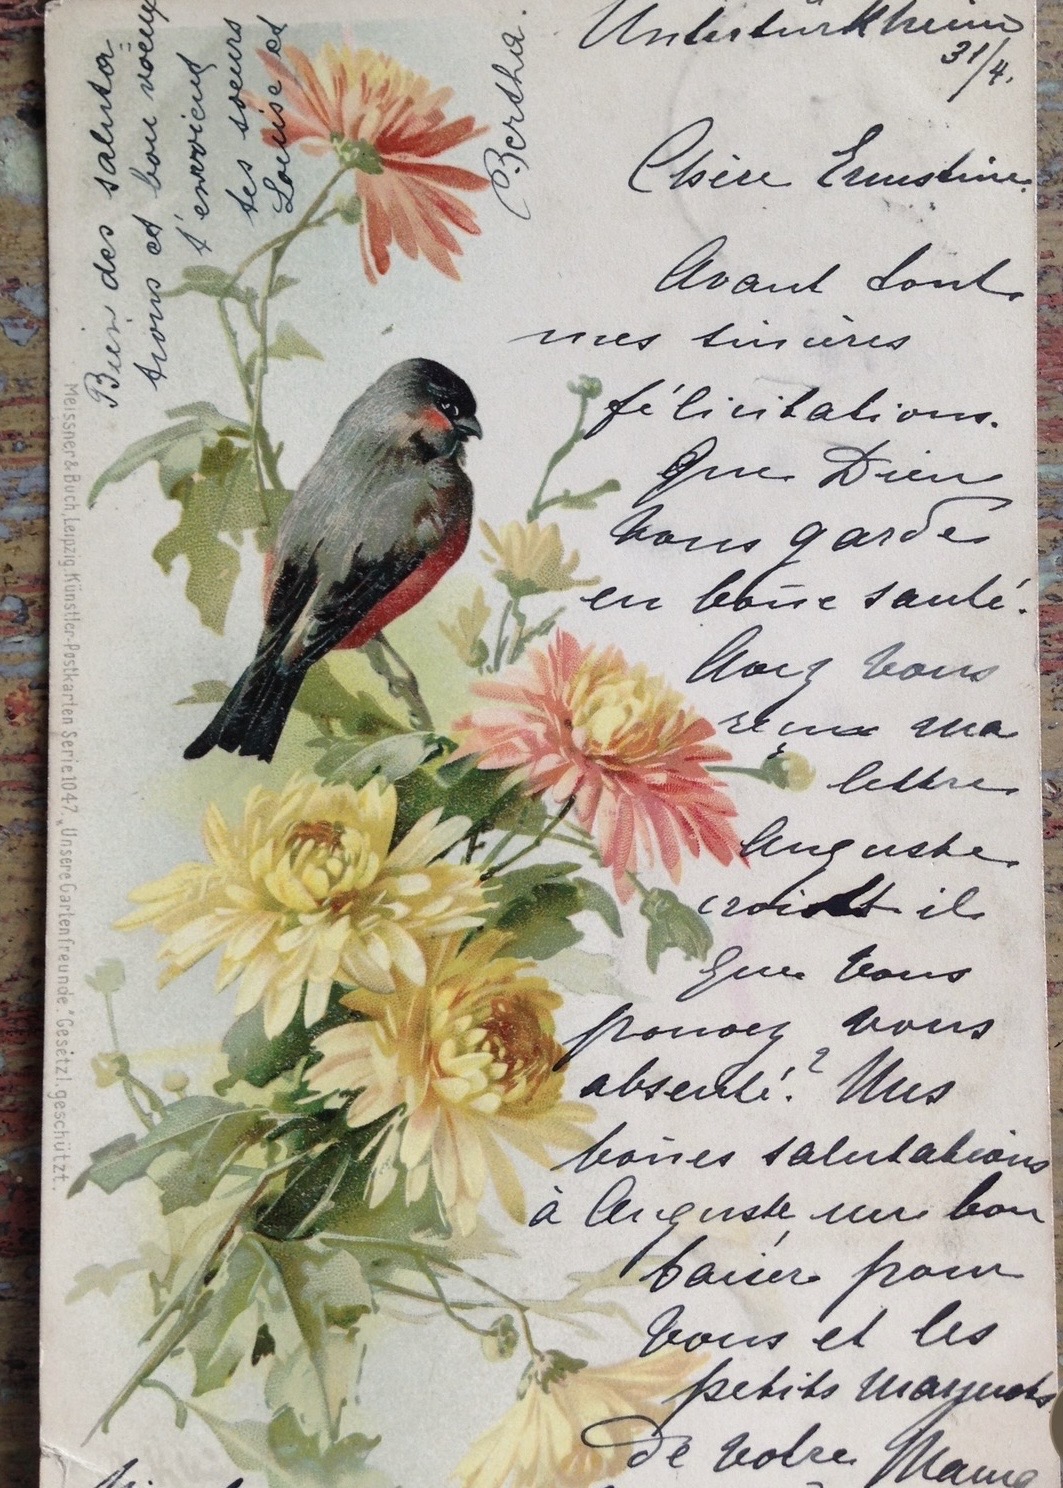 Untertürkheim
31/4.
Chère Ernestine
Avant tout
mes sincères
félicitations.
Que Dieu
vous garde
en bon̄e santé.
Avez vous
reçue ma
lettre
Auguste
croit il
que vous
pouvez vous
absenté?
bon̄es salutations
à Auguste un bon
baiser pour
vous et les
petits
de votre Mama
Bien des saluta-
tions et bon voeux
t'envoient
tes soeurs
Louise et
Bertha.
Meissner & Buch, Leipzig. Künstler-Postkarten Serie 1047. „Unsere Gartenfreunde." Gesetzl. geschützt.